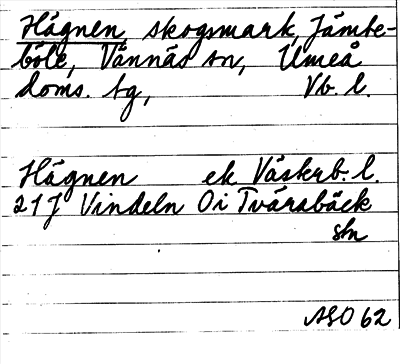 Hägnen, skogsmark, Jämte-
böle, Vännäs sn, Umeå
doms. tg, Vb. l.
Hägnen ek Väskrb. l.
21J Vindeln Oi Tvärabäck
stn
ASO 62